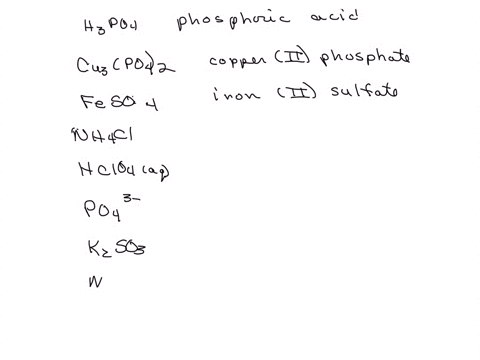 H₃PO₄ phosphoric acid
Cu₃(PO₄)₂ copper (II) phosphate
FeSO₄ iron (II) sulfate
NH₄Cl
HClO₄(aq)
PO₄³⁻
K₂SO₃
N